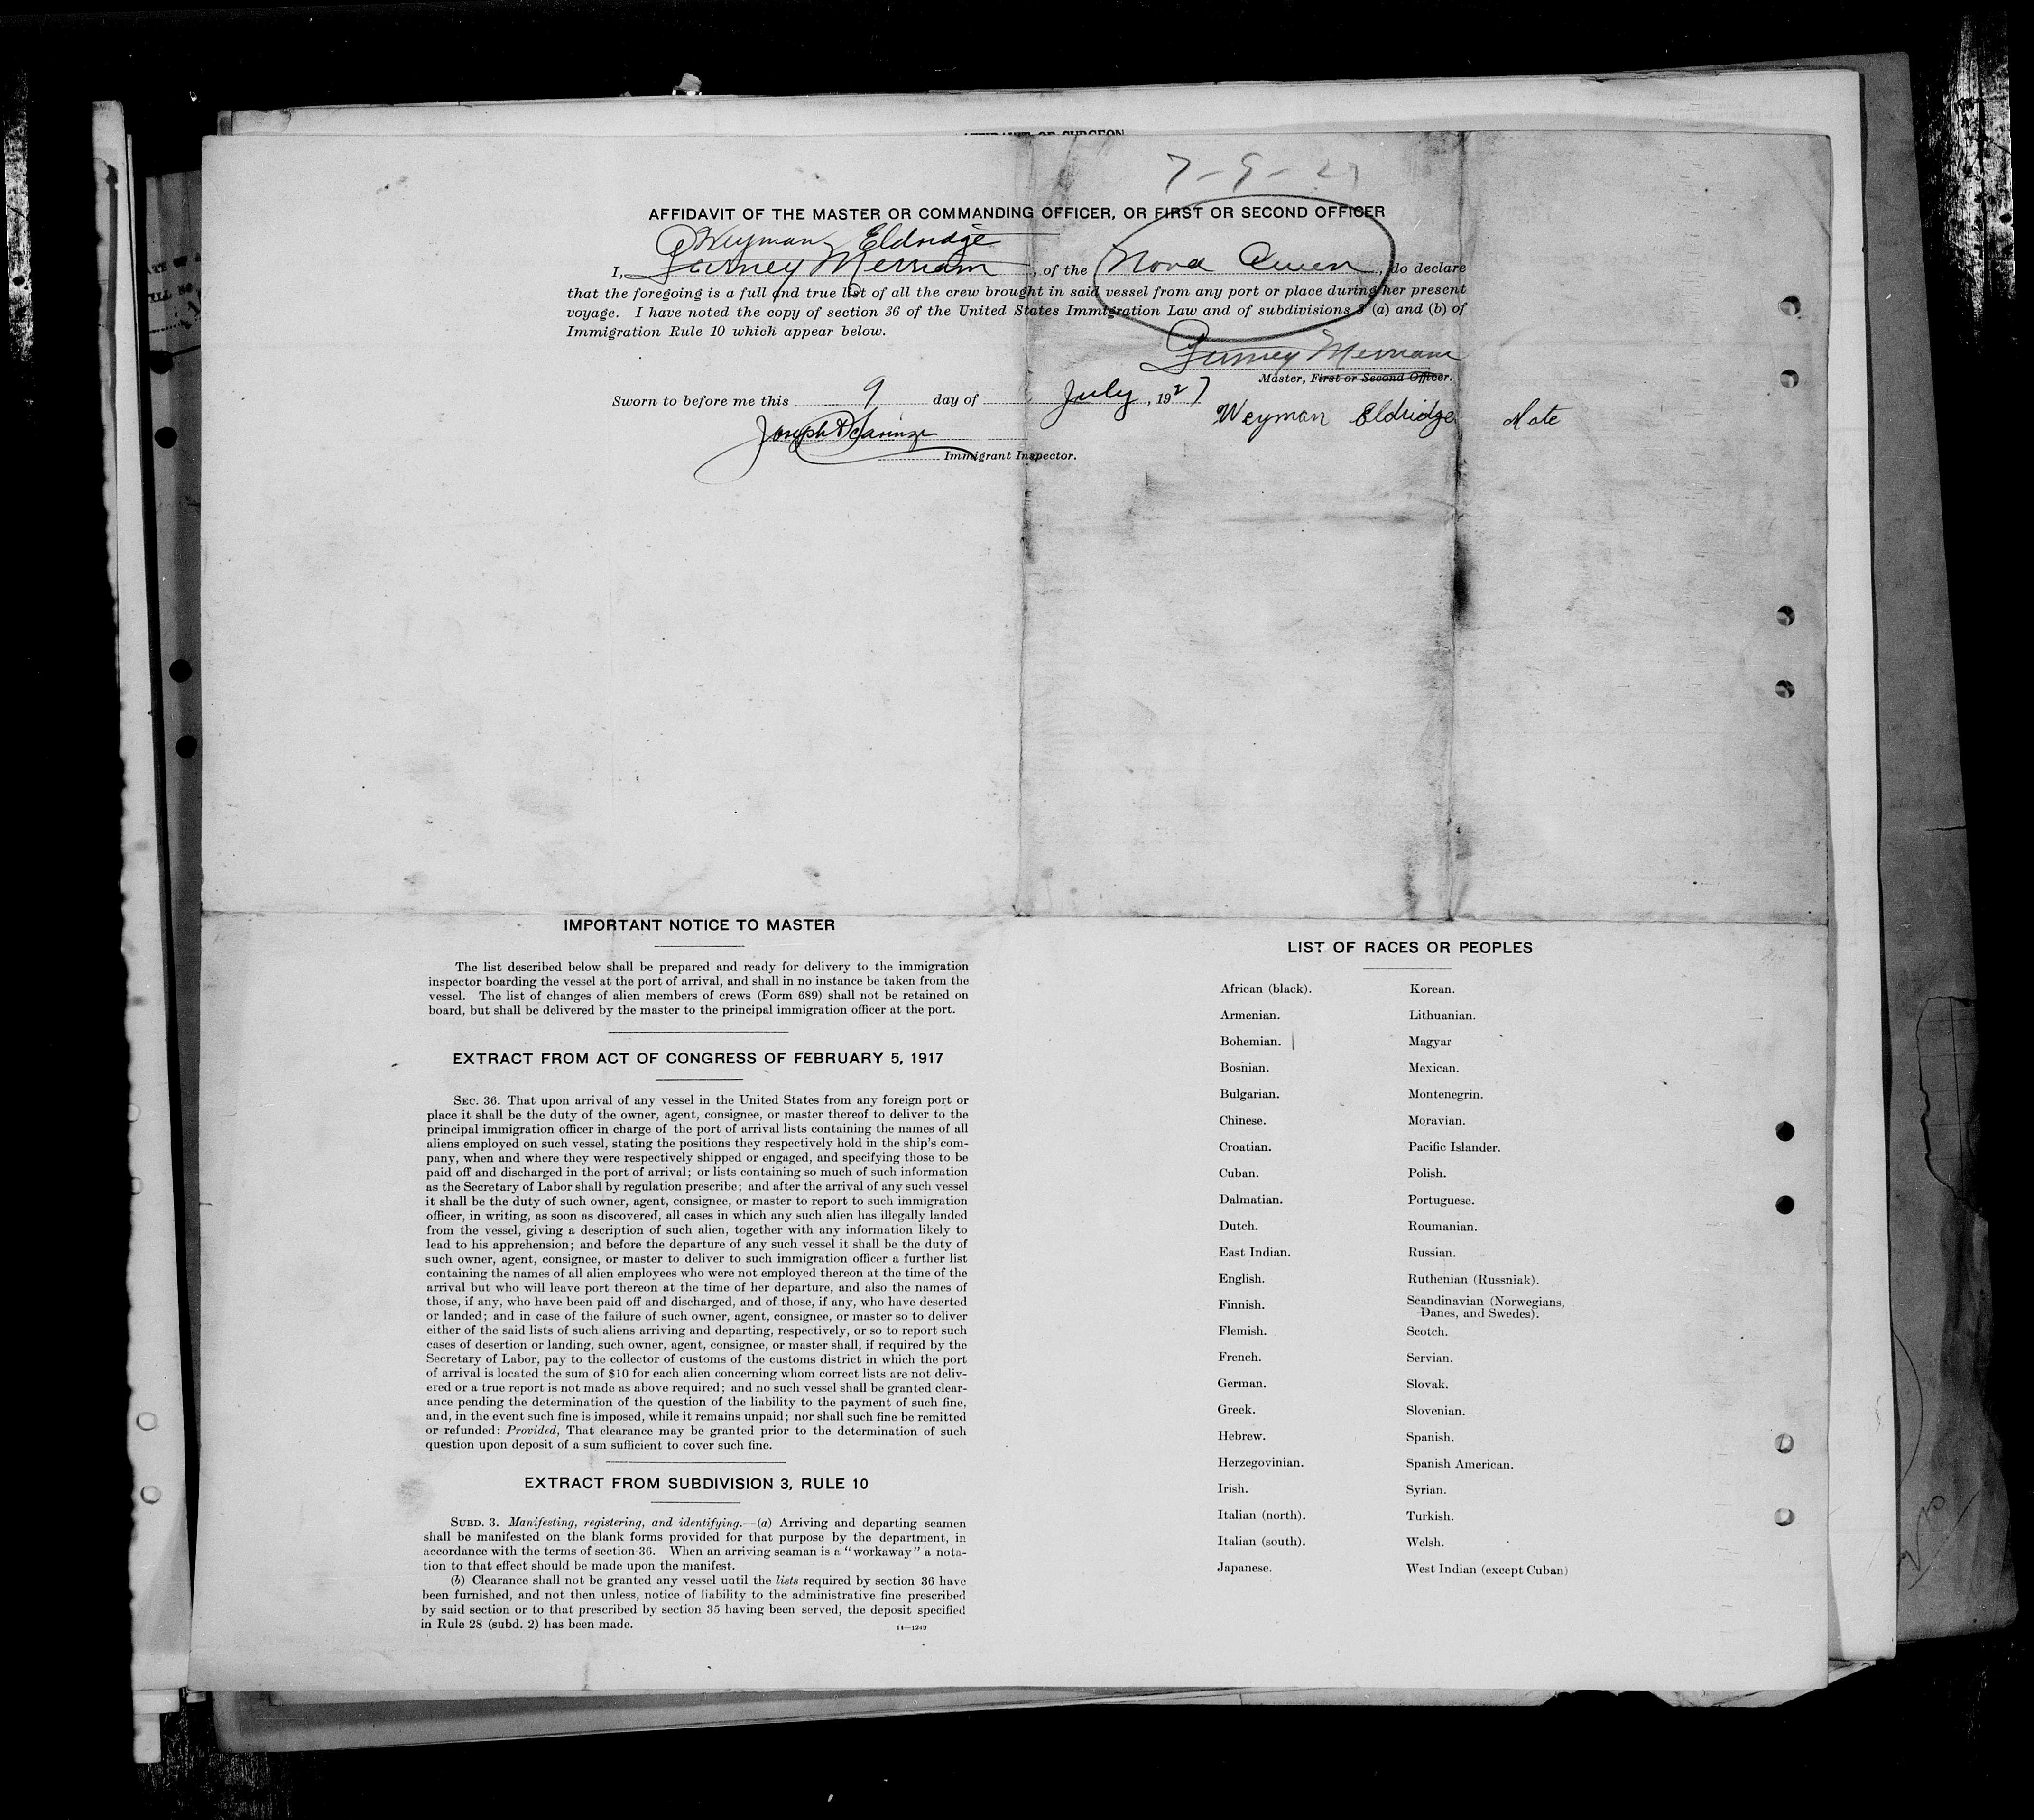 AFFIDAVIT OF SURGEON
7-9-27
AFFIDAVIT OF THE MASTER OR COMMANDING OFFICER, OR FIRST OR SECOND OFFICER
Weyman Eldridge
I, Gurney Merriam, of the Nova Queen, do declare
that the foregoing is a full and true list of all the crew brought in said vessel from any port or place during her present
voyage. I have noted the copy of section 36 of the United States Immigration Law and of subdivisions 3 (a) and (b) of
Immigration Rule 10 which appear below.
Gurney Merriam
Master, First or Second Officer.
Sworn to before me this 9 day of July, 1927
Weyman Eldridge Mate
Joseph
Immigrant Inspector.
IMPORTANT NOTICE TO MASTER
The list described below shall be prepared and ready for delivery to the immigration
inspector boarding the vessel at the port of arrival, and shall in no instance be taken from the
vessel. The list of changes of alien members of crews (Form 689) shall not be retained on
board, but shall be delivered by the master to the principal immigration officer at the port.
EXTRACT FROM ACT OF CONGRESS OF FEBRUARY 5, 1917
SEC. 36. That upon arrival of any vessel in the United States from any foreign port or
place it shall be the duty of the owner, agent, consignee, or master thereof to deliver to the
principal immigration officer in charge of the port of arrival lists containing the names of all
aliens employed on such vessel, stating the positions they respectively hold in the ship's com-
pany, when and where they were respectively shipped or engaged, and specifying those to be
paid off and discharged in the port of arrival; or lists containing so much of such information
as the Secretary of Labor shall by regulation prescribe; and after the arrival of any such vessel
it shall be the duty of such owner, agent, consignee, or master to report to such immigration
officer, in writing, as soon as discovered, all cases in which any such alien has illegally landed
from the vessel, giving a description of such alien, together with any information likely to
lead to his apprehension; and before the departure of any such vessel it shall be the duty of
such owner, agent, consignee, or master to deliver to such immigration officer a further list
containing the names of all alien employees who were not employed thereon at the time of the
arrival but who will leave port thereon at the time of her departure, and also the names of
those, if any, who have been paid off and discharged, and of those, if any, who have deserted
or landed; and in case of the failure of such owner, agent, consignee, or master so to deliver
either of the said lists of such aliens arriving and departing, respectively, or so to report such
cases of desertion or landing, such owner, agent, consignee, or master shall, if required by the
Secretary of Labor, pay to the collector of customs of the customs district in which the port
of arrival is located the sum of $10 for each alien concerning whom correct lists are not deliv-
ered or a true report is not made as above required; and no such vessel shall be granted clear-
ance pending the determination of the question of the liability to the payment of such fine,
and, in the event such fine is imposed, while it remains unpaid; nor shall such fine be remitted
or refunded: Provided, That clearance may be granted prior to the determination of such
question upon deposit of a sum sufficient to cover such fine.
EXTRACT FROM SUBDIVISION 3, RULE 10
SUBD. 3. Manifesting, registering, and identifying.—(a) Arriving and departing seamen
shall be manifested on the blank forms provided for that purpose by the department, in
accordance with the terms of section 36. When an arriving seaman is a "workaway" a nota-
tion to that effect should be made upon the manifest.
(b) Clearance shall not be granted any vessel until the lists required by section 36 have
been furnished, and not then unless, notice of liability to the administrative fine prescribed
by said section or to that prescribed by section 35 having been served, the deposit specified
in Rule 28 (subd. 2) has been made.
14—1249
LIST OF RACES OR PEOPLES
African (black).
Armenian.
Bohemian.
Bosnian.
Bulgarian.
Chinese.
Croatian.
Cuban.
Dalmatian.
Dutch.
East Indian.
English.
Finnish.
Flemish.
French.
German.
Greek.
Hebrew.
Herzegovinian.
Irish.
Italian (north).
Italian (south).
Japanese.
Korean.
Lithuanian.
Magyar
Mexican.
Montenegrin.
Moravian.
Pacific Islander.
Polish.
Portuguese.
Roumanian.
Russian.
Ruthenian (Russniak).
Scandinavian (Norwegians,
Danes, and Swedes).
Scotch.
Servian.
Slovak.
Slovenian.
Spanish.
Spanish American.
Syrian.
Turkish.
Welsh.
West Indian (except Cuban)